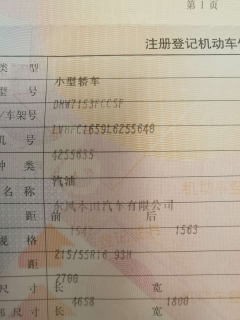 第 1 页
注册登记机动车
类 型 小型轿车
型 号 DHW7153FCCSF
/车架号 LVHFC1659L6255640
机 号 4255635
种 类 汽油
名 称 东风本田汽车有限公司
距 前 1547 后 1563
规 格 215/55R16 93H
距 2700
尺 寸 长 4658 宽 1800
尺 寸 长 宽